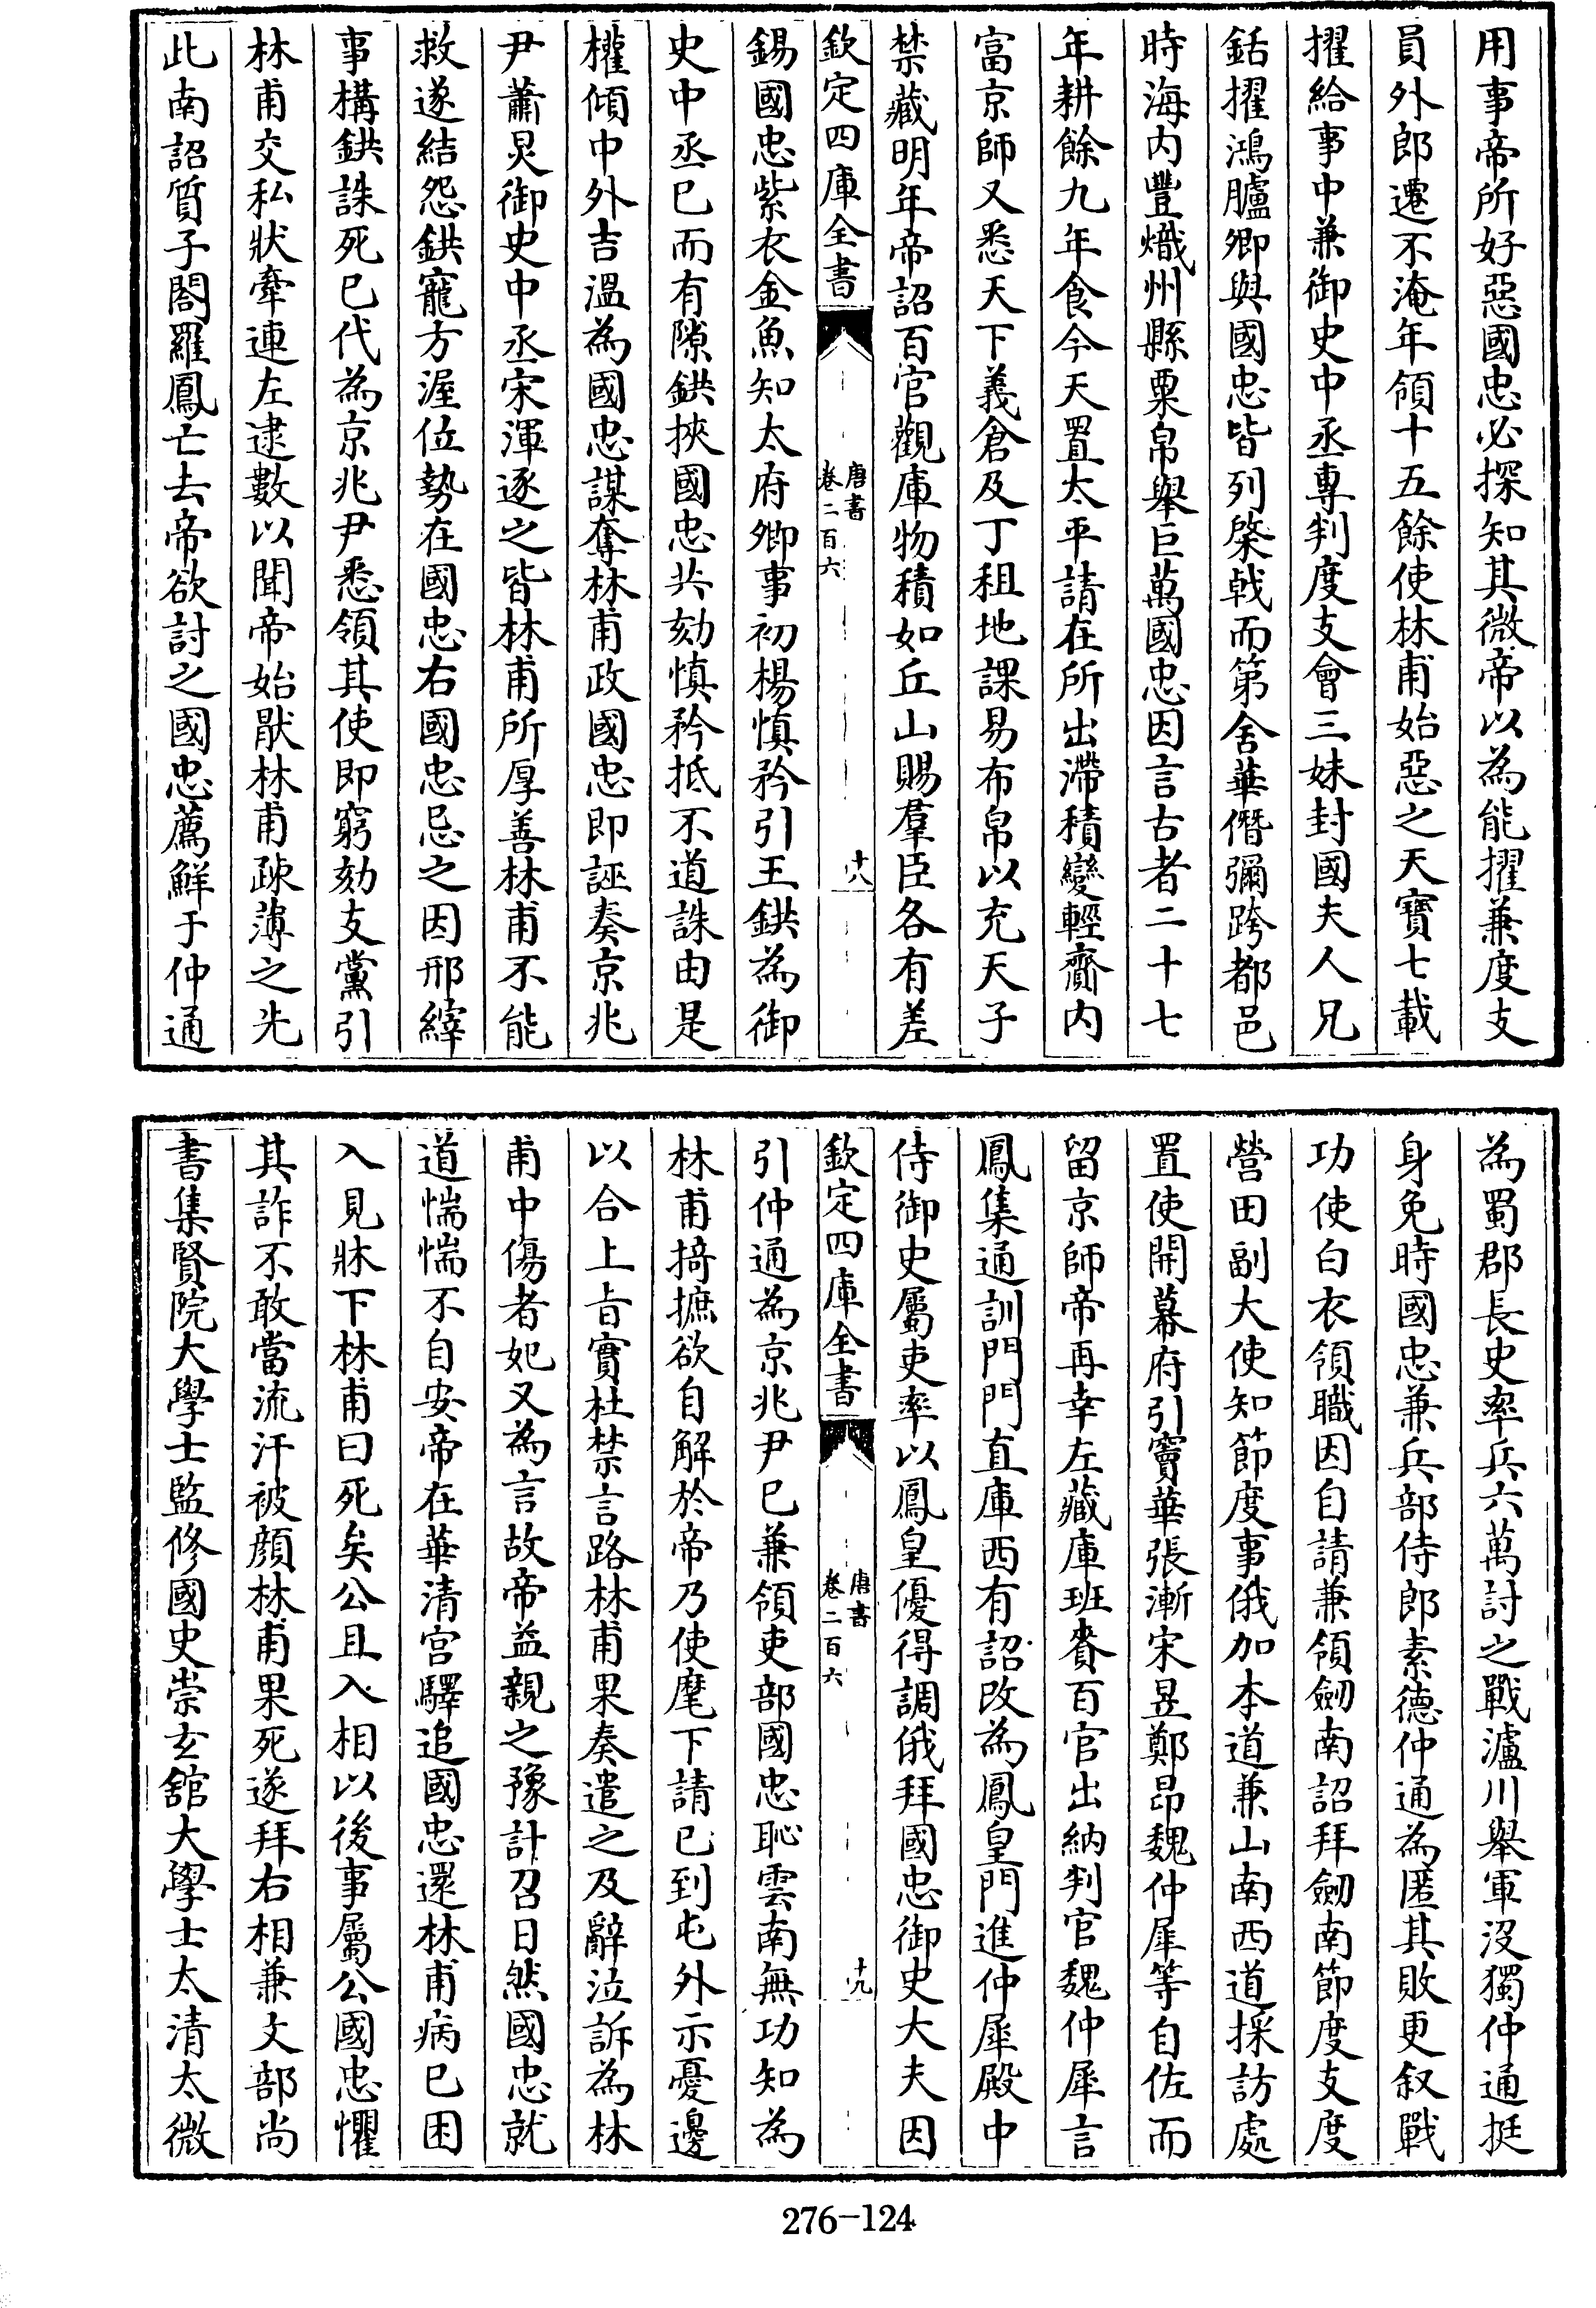 用事帝所好惡國忠必探知其微帝以為能擢兼度支
員外郎遷不淹年領十五餘使林甫始惡之天寶七載
擢給事中兼御史中丞專判度支會三妹封國夫人兄
銛擢鴻臚卿與國忠皆列棨戟而第舍華僭彌跨都邑
時海内豐熾州縣粟帛舉巨萬國忠因言古者二十七
年耕餘九年食今天置太平請在所出滯積變輕齎内
富京師又悉天下義倉及丁租地課易布帛以充天子
禁藏明年帝詔百官觀庫物積如丘山賜羣臣各有差
欽定四庫全書
唐書
卷二百六
十八
錫國忠紫衣金魚知太府卿事初楊慎矜引王鉷為御
史中丞已而有隙鉷挾國忠共劾慎矜抵不道誅由是
權傾中外吉溫為國忠謀奪林甫政國忠即誣奏京兆
尹蕭炅御史中丞宋渾逐之皆林甫所厚善林甫不能
救遂結怨鉷寵方渥位勢在國忠右國忠忌之因邢縡
事構鉷誅死已代為京兆尹悉領其使即窮劾支黨引
林甫交私狀牽連左逮數以聞帝始猒林甫疎薄之先
此南詔質子閤羅鳳亡去帝欲討之國忠薦鮮于仲通
為蜀郡長史率兵六萬討之戰瀘川舉軍沒獨仲通挺
身免時國忠兼兵部侍郎素德仲通為匿其敗更叙戰
功使白衣領職因自請兼領劒南詔拜劒南節度支度
營田副大使知節度事俄加本道兼山南西道採訪處
置使開幕府引竇華張漸宋昱鄭昂魏仲犀等自佐而
留京師帝再幸左藏庫班賚百官出納判官魏仲犀言
鳳集通訓門門直庫西有詔改為鳳皇門進仲犀殿中
侍御史屬吏率以鳳皇優得調俄拜國忠御史大夫因
欽定四庫全書
唐書
卷二百六
十九
引仲通為京兆尹已兼領吏部國忠恥雲南無功知為
林甫掎摭欲自解於帝乃使麾下請已到屯外示憂邊
以合上旨實杜禁言路林甫果奏遣之及辭泣訴為林
甫中傷者妃又為言故帝益親之豫計召日然國忠就
道惴惴不自安帝在華清宫驛追國忠還林甫病已困
入見牀下林甫曰死矣公且入相以後事屬公國忠懼
其詐不敢當流汗被顔林甫果死遂拜右相兼文部尚
書集賢院大學士監修國史崇玄舘大學士太清太微
276-124